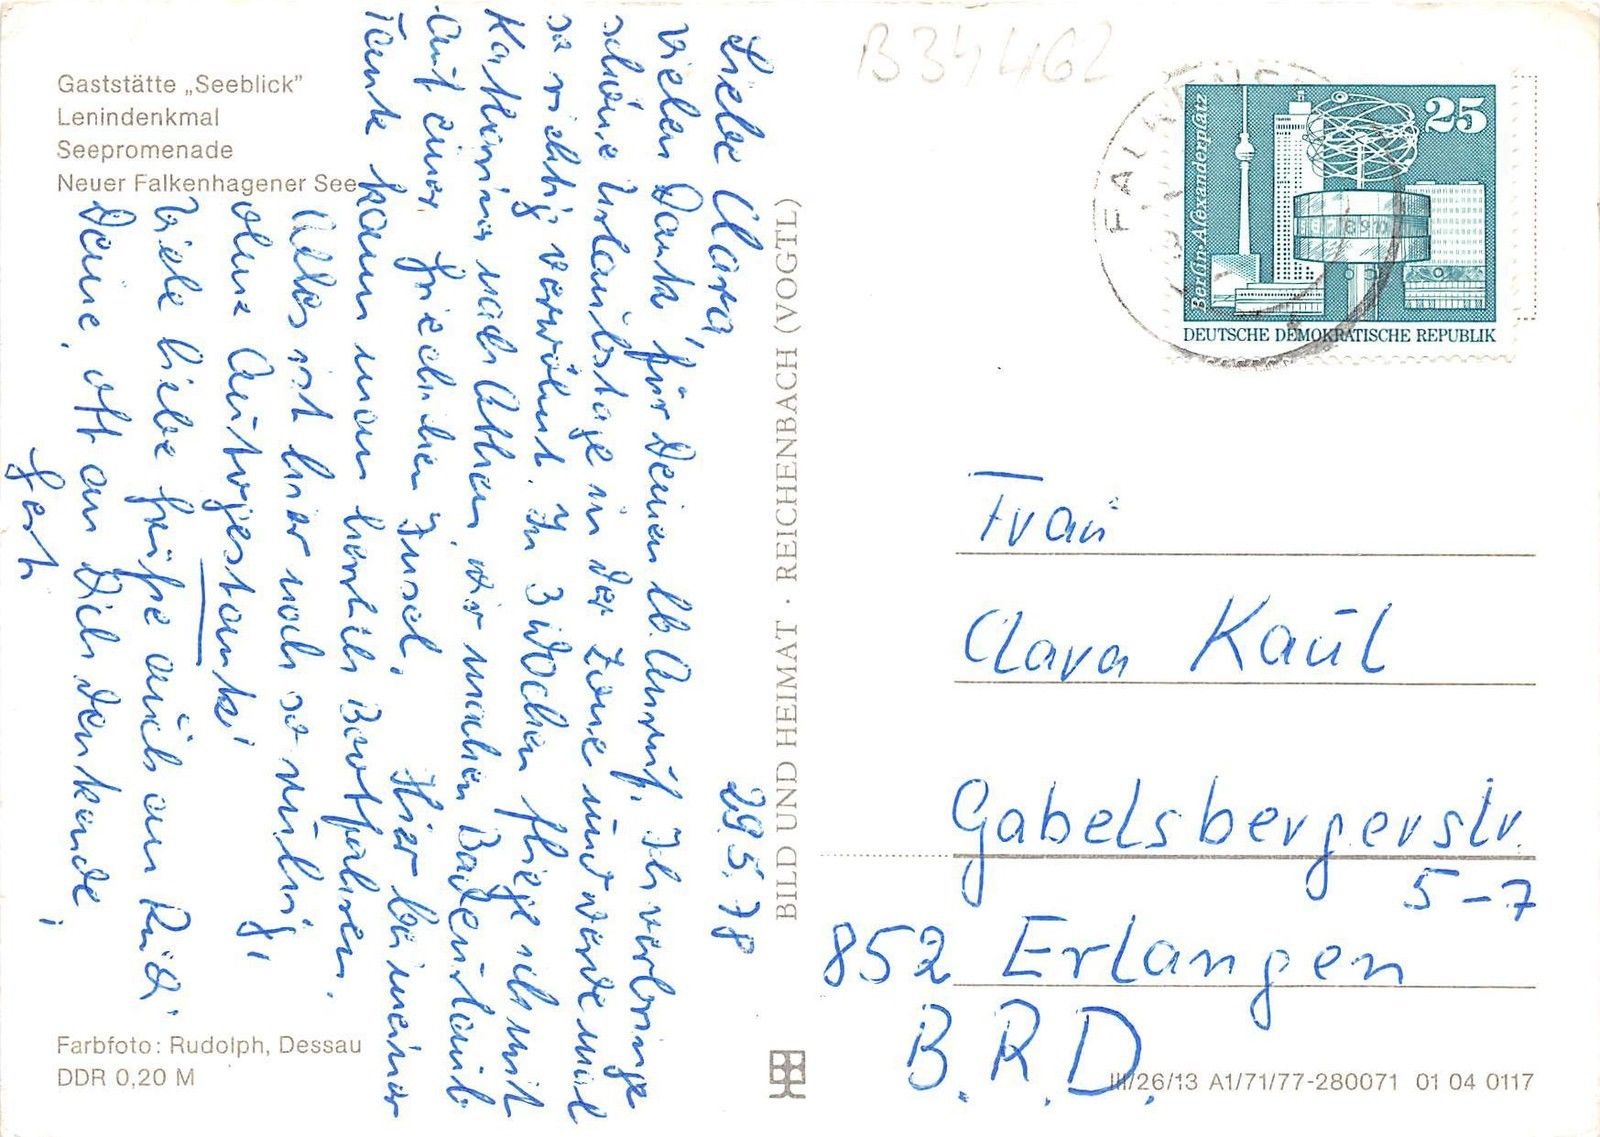 Gaststätte „Seeblick"
Lenindenkmal
Seepromenade
Neuer Falkenhagener See
29.5.78
Liebe Clara,
vielen Dank für Deinen lb. Anruf. Ich verbringe
schöne Urlaubstage in der Zone und werde mal
so richtig verwöhnt. In 3 Wochen fliege ich mit
Katharina nach Athen, wir machen Badeurlaub
auf einer griechischen Insel. Hier bei meiner
Tante kann man herrlich Bootfahren.
Alles ist hier noch so ruhig,
ohne Autogestank!
Viele liebe Grüße auch an Rudi
Deine, oft an Dich denkende,
Gerti
Farbfoto: Rudolph, Dessau
DDR 0,20 M
BILD UND HEIMAT · REICHENBACH (VOGTL)
B34462
FALKENS
Berlin-Alexanderplatz
25
DEUTSCHE DEMOKRATISCHE REPUBLIK
Frau
Clara Kaul
Gabelsbergerstr.
5-7
852 Erlangen
B.R.D.
III/26/13 A1/71/77-280071 01 04 0117